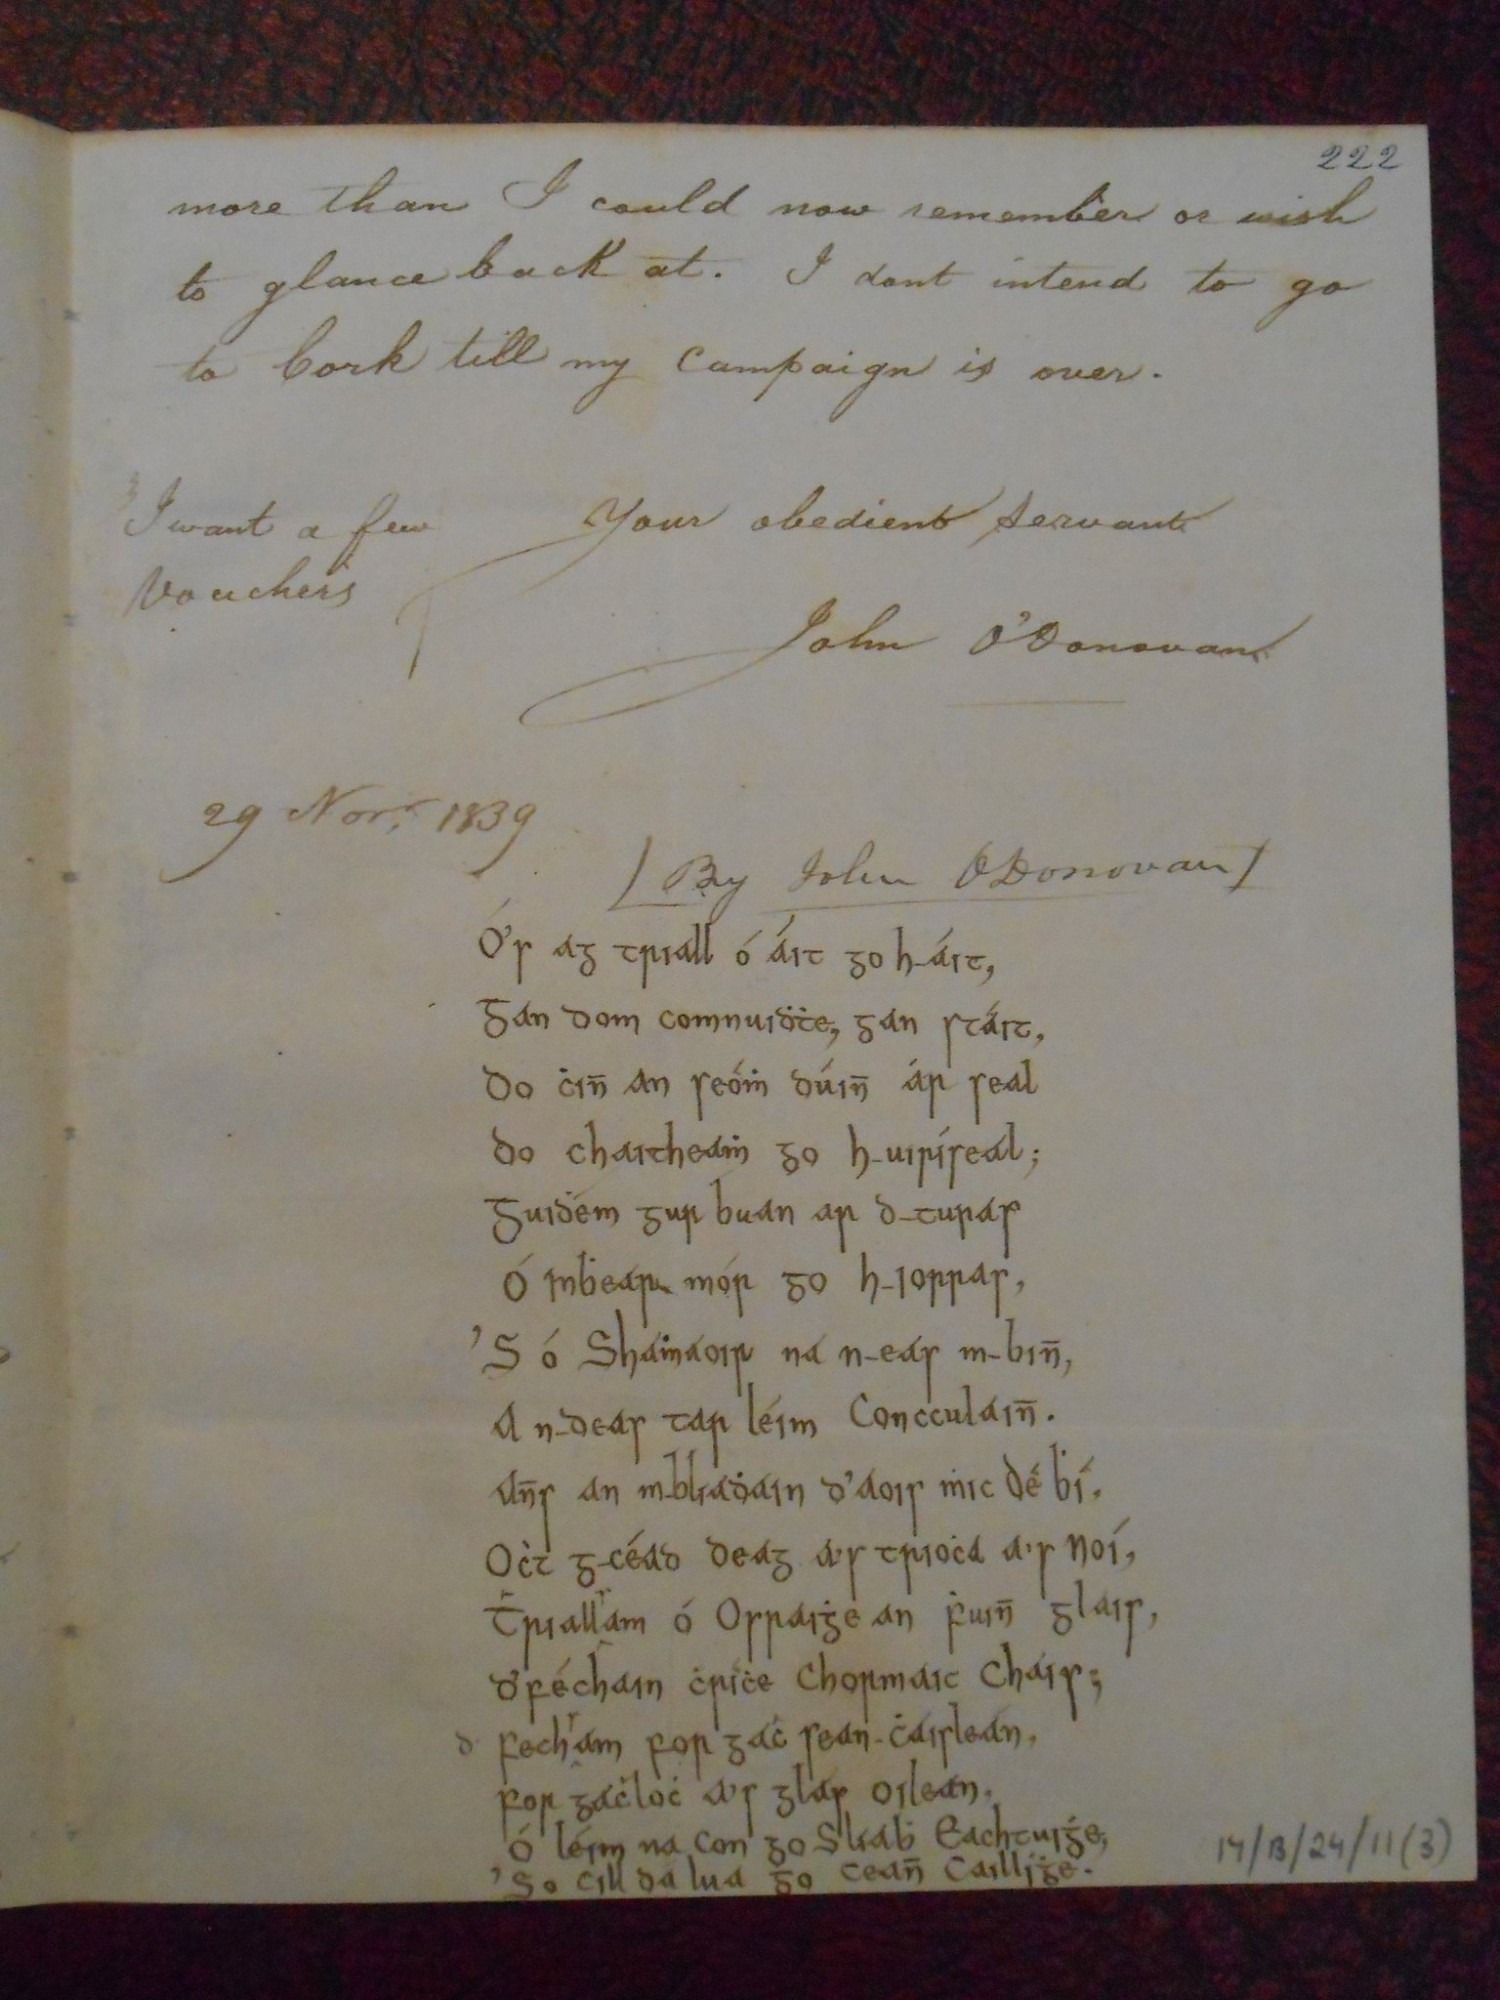 222
more than I could now remember or wish
to glance back at. I dont intend to go
to Cork till my Campaign is over.
I want a few
Vouchers
Your obedient servant
John O'Donovan
29 Novr. 1839
[By John O'Donovan]
Ó's ag triall ó áit go h-áit,
Gan dom comnuiḋṫe, gan stáit,
do ċin̄ an seóiṁ dúin̄ ár seal
do chaitheaṁ go h-uiríseal;
Guiḋem gur buan ar d-turas
Ó Inḃear mór go h-Iorras,
'S ó Shaṁaoir na n-eas m-bin̄,
A n-deas tar léim Conculáin̄.
An̄s an m-bliaḋain d'aois ṁic Dé ḃí.
Oċt g-céad deag a's trioċa a's noí,
Triallam ó Osraiġe an ḟuin̄ glais,
d'féchain ċríċe Chormaic Chais;
d fecham for gaċ sean-ċaislean,
for gaċ loċ a's glas oilean,
ó léim na con go Sliaḃ Eachtuiġe,
'S o Cill da lua go cean̄ Cailliġe.
14/B/24/11(3)